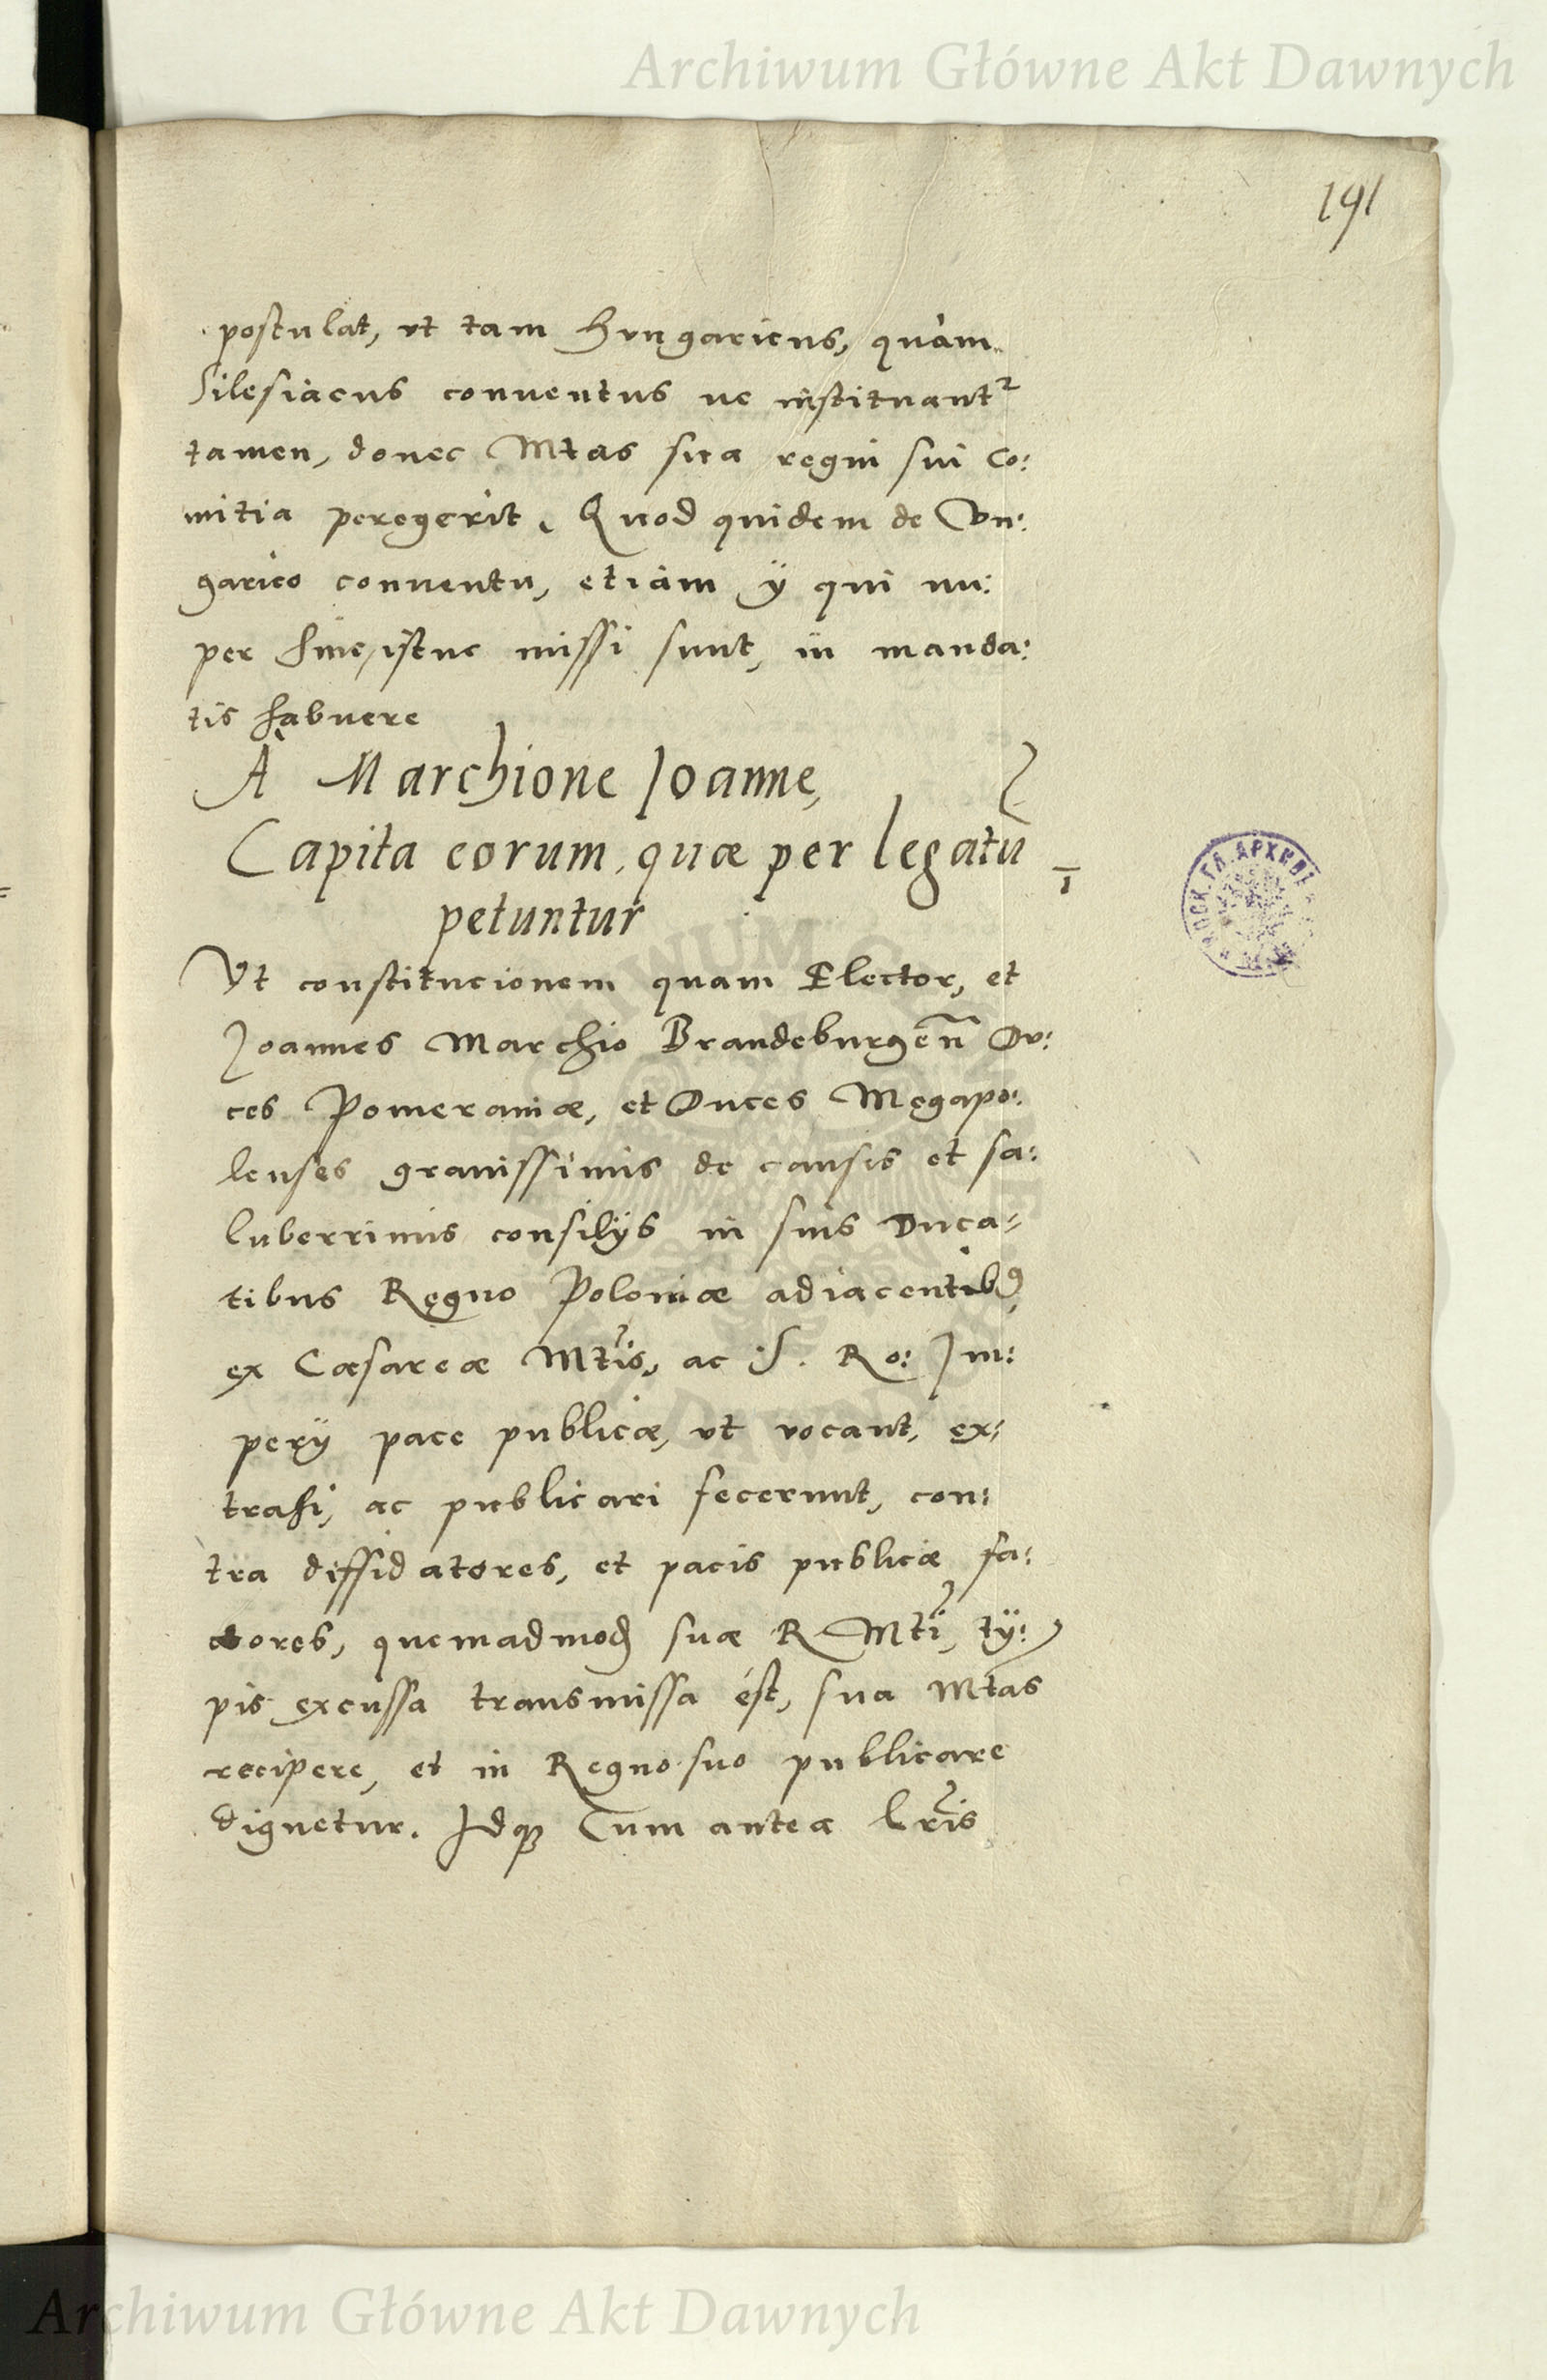 Archiwum Główne Akt Dawnych
191
postulat, vt tam Hungaricus, quàm
Silesiacus conuentus ne instituant̃
tamen, donec Mtas sua regni sui Co:
mitia peregerit. Quod quidem de Vn:
garico conuentu, etiam ÿ qui nu:
per huic istuc missi sunt, in manda:
tis habuere
A Marchione Joanne,
Capita eorum, quæ per legatū
petuntur
1
Vt constitucionem quam Elector, et
Joannes Marchio Brandeburgeñ Du:
ces Pomeraniæ, et Duces Megapo:
lenses grauissimis de causis et sa:
luberrimis consilÿs in suis Duca-
tibus Regno Poloniæ adiacentib9
ex Cæsareæ Mtis, ac S. Ro: Im:
perÿ pace publicæ, vt vocant, ex:
trahi, ac publicari fecerunt, con:
tra diffidatores, et pacis publicæ fa:
ctores, quemadmoḋ suæ R Mti, tÿ:
pis excussa transmissa ést, sua Mtas
recipere, et in Regno suo publicare
dignetur. Idq3 Cum antea Lris
Archiwum Główne Akt Dawnych